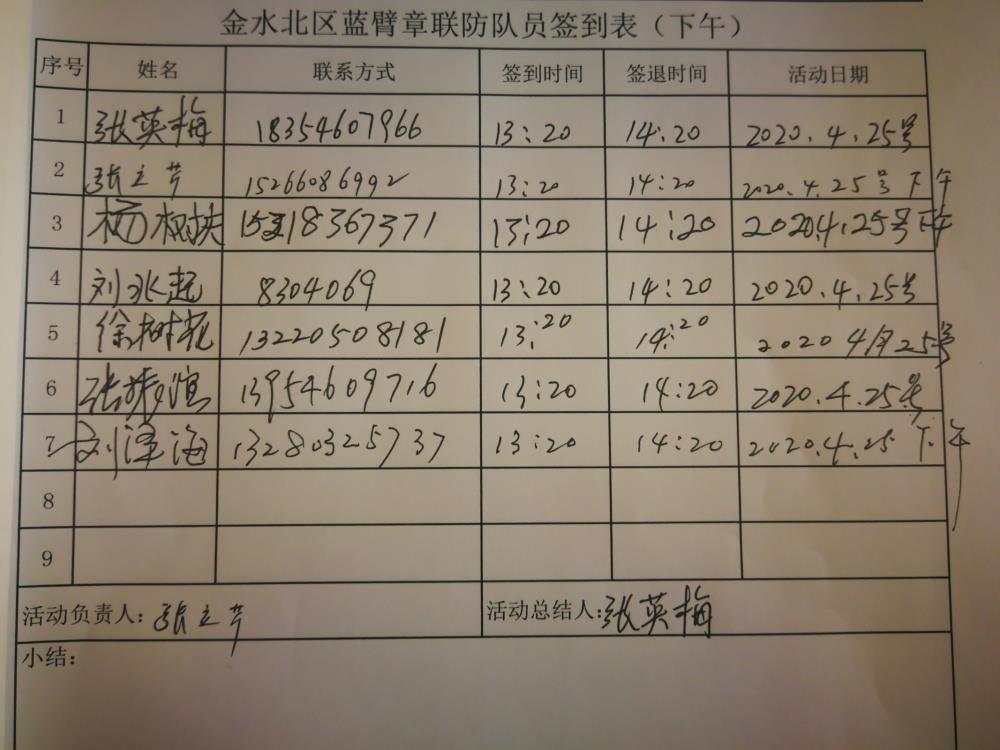 金水北区蓝臂章联防队员签到表（下午）
序号 姓名 联系方式 签到时间 签退时间 活动日期
1 张英梅 18354607966 13:20 14:20 2020.4.25号
2 张立芹 15266086992 13:20 14:20 2020.4.25号下午
3 杨树 18367371 13:20 14:20 2020.4.25号下午
4 刘兆起 8304069 13:20 14:20 2020.4.25号
5 徐树花 13220508181 13:20 14:20 2020 4月25号
6 张 13954609716 13:20 14:20 2020.4.25号
7 刘泽海 13280325737 13:20 14:20 2020.4.25 下午
8
9
活动负责人：张立芹 活动总结人：张英梅
小结：